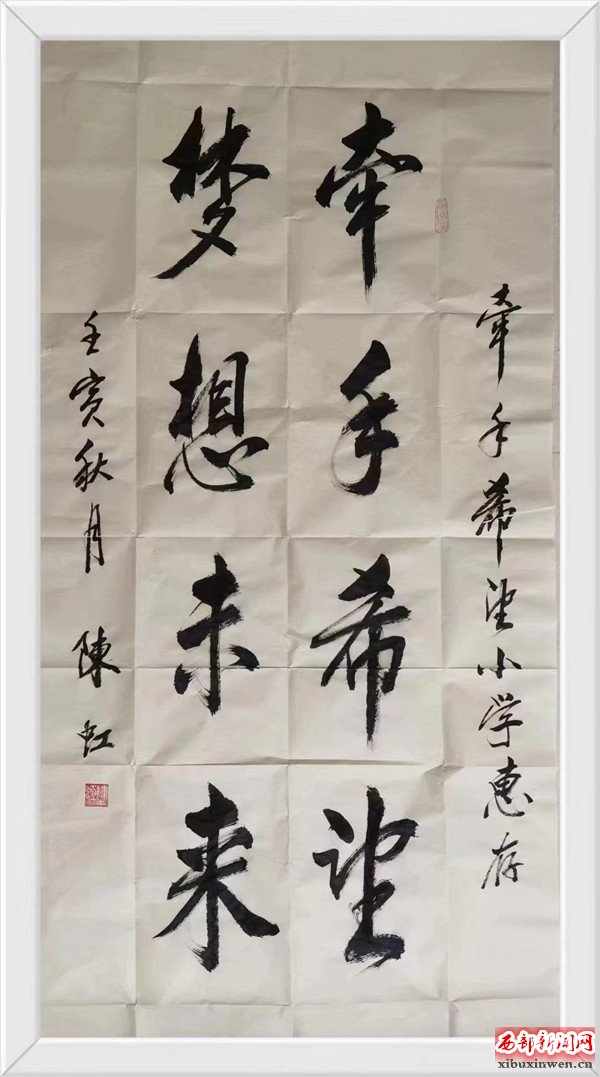 牵手希望小学惠存
牵手希望
梦想未来
壬寅秋月 陳虹
西部新闻网
xibuxinwen.cn